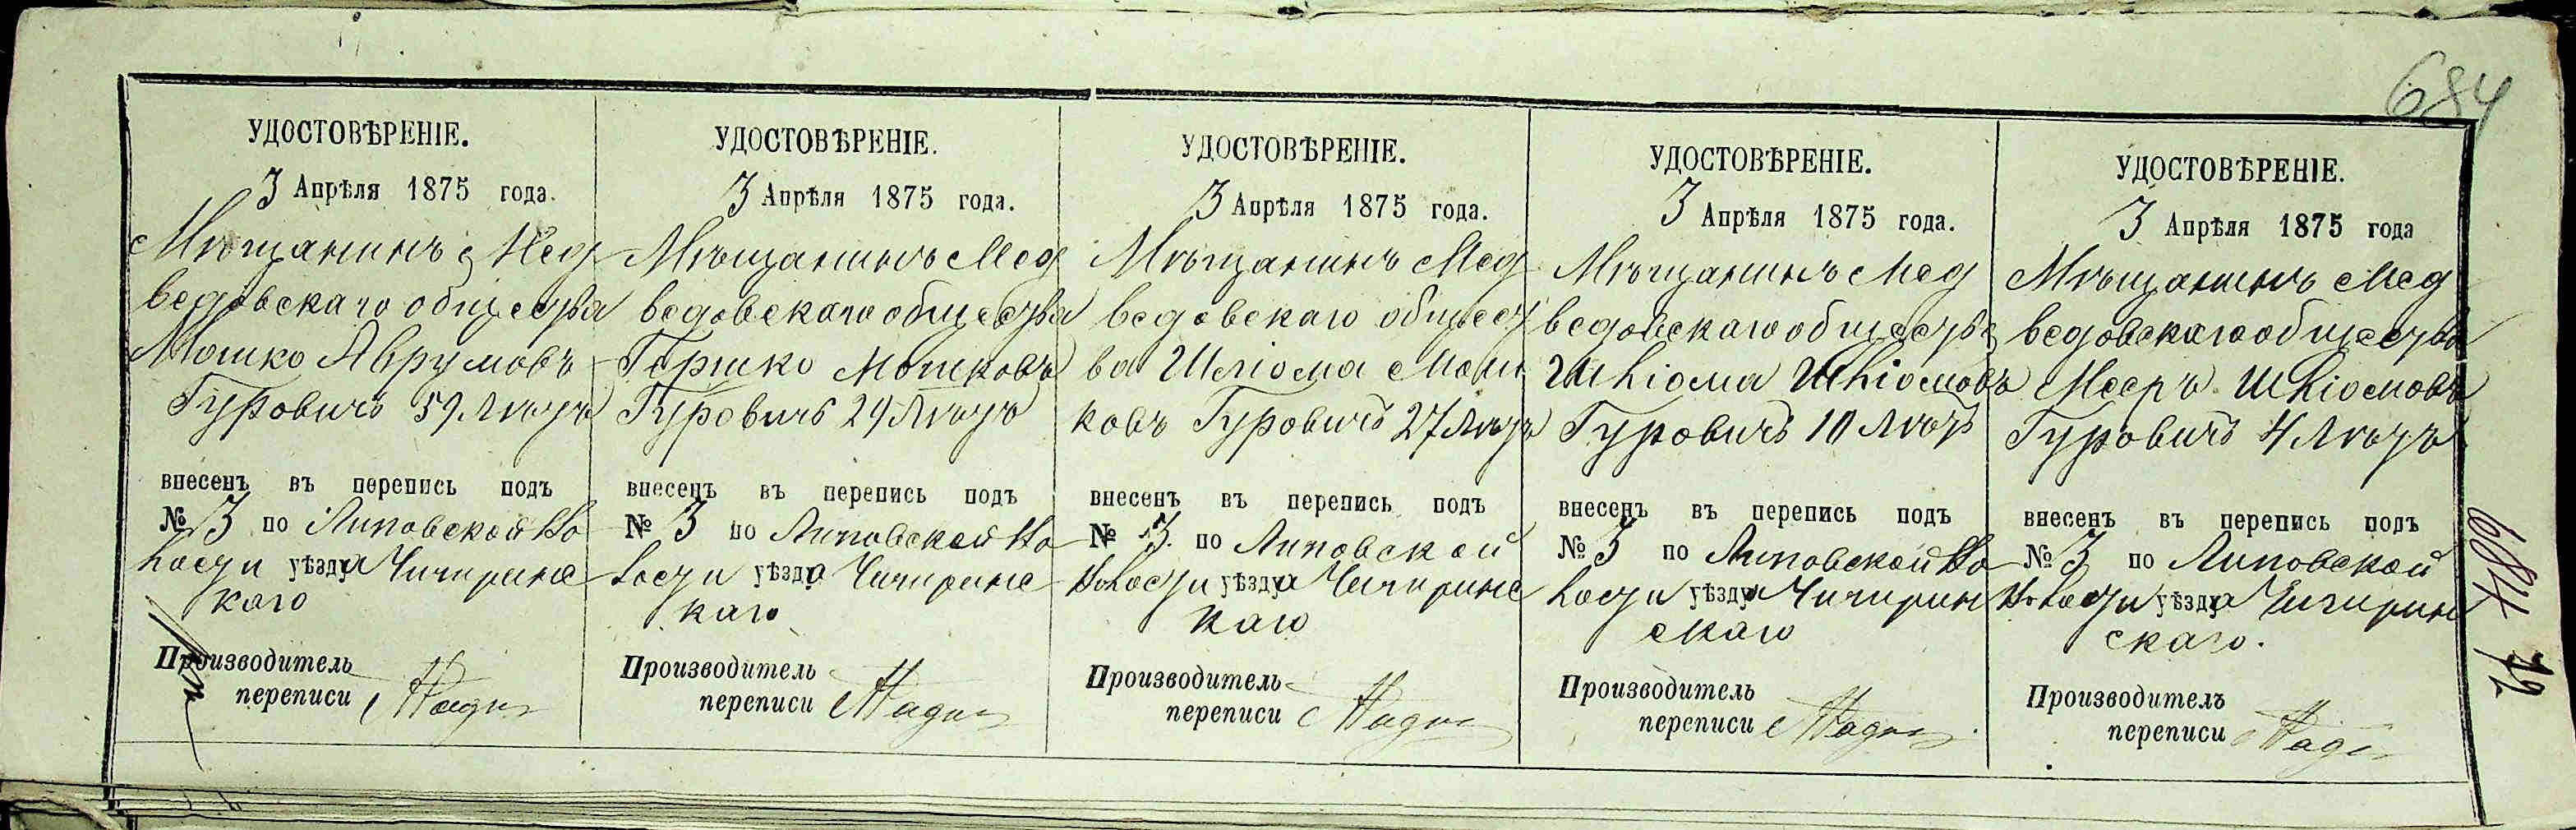 684
УДОСТОВѢРЕНІЕ.
3 Апрѣля 1875 года.
Мѣщанинъ Мед
ведовскаго общества
Мошко Аврумовъ
Гуровичъ 59 лѣтъ
внесенъ въ перепись подъ
№ 3 по Липовской во
лости уѣзда Чигиринс
каго
Производитель
переписи
УДОСТОВѢРЕНІЕ.
3 Апрѣля 1875 года.
Мѣщанинъ Мед
ведовскаго общества
Гершко Мошковъ
Гуровичъ 29 лѣтъ
внесенъ въ перепись подъ
№ 3 по Липовской во
лости уѣзда Чигиринс
каго
Производитель
переписи
УДОСТОВѢРЕНІЕ.
3 Апрѣля 1875 года.
Мѣщанинъ Мед
ведовскаго общест
ва Шліома Мош
ковъ Гуровичъ 27 лѣтъ
внесенъ въ перепись подъ
№ 3. по Липовской
волости уѣзда Чигиринс
каго
Производитель
переписи
УДОСТОВѢРЕНІЕ.
3 Апрѣля 1875 года.
Мѣщанинъ Мед
ведовскаго общества
Шліома Шліомовъ
Гуровичъ 10 лѣтъ
внесенъ въ перепись подъ
№ 3 по Липовской во
лости уѣзда Чигирин
скаго
Производитель
переписи
УДОСТОВѢРЕНІЕ.
3 Апрѣля 1875 года
Мѣщанинъ Мед
ведовскаго общества
Мееръ Шліомовъ
Гуровичъ 4 лѣтъ
внесенъ въ перепись подъ
№ 3 по Липовской
волости уѣзда Чигирин
скаго.
Производитель
переписи
684